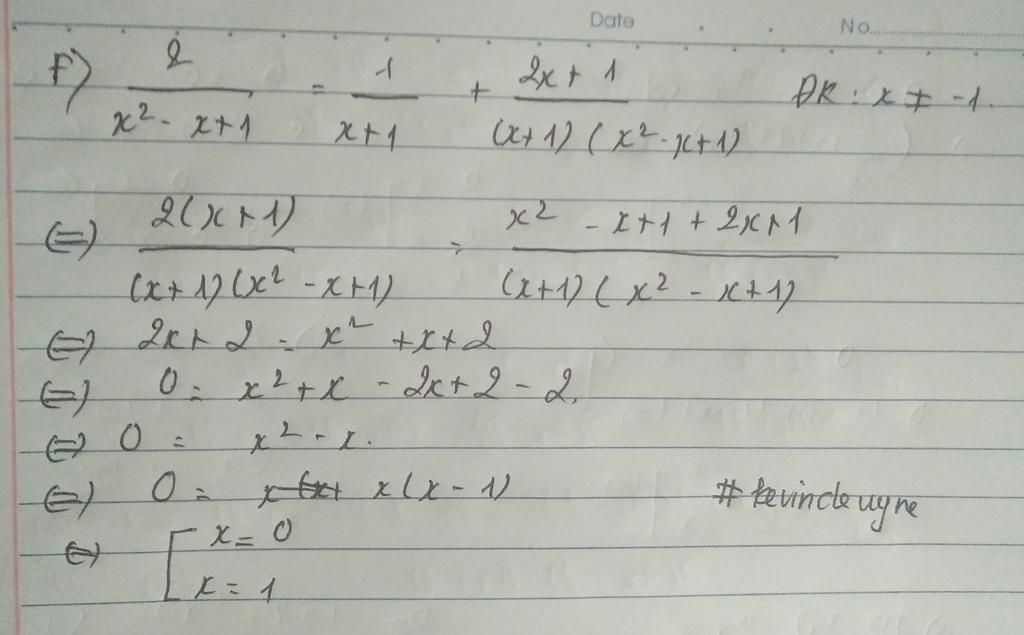 Date No.
f) 2/(x² - x+1) = 1/(x+1) + (2x+1)/((x+1)(x²-x+1)) ĐK: x ≠ -1.
(=) 2(x+1)/((x+1)(x² -x+1)) = (x² - x+1 + 2x+1)/((x+1)(x² - x+1))
(=) 2x+2 = x² +x+2
(=) 0 = x²+x - 2x+2-2.
(=) 0 = x² - x.
(=) 0 = x x(x-1)
(=) [ x = 0
x = 1